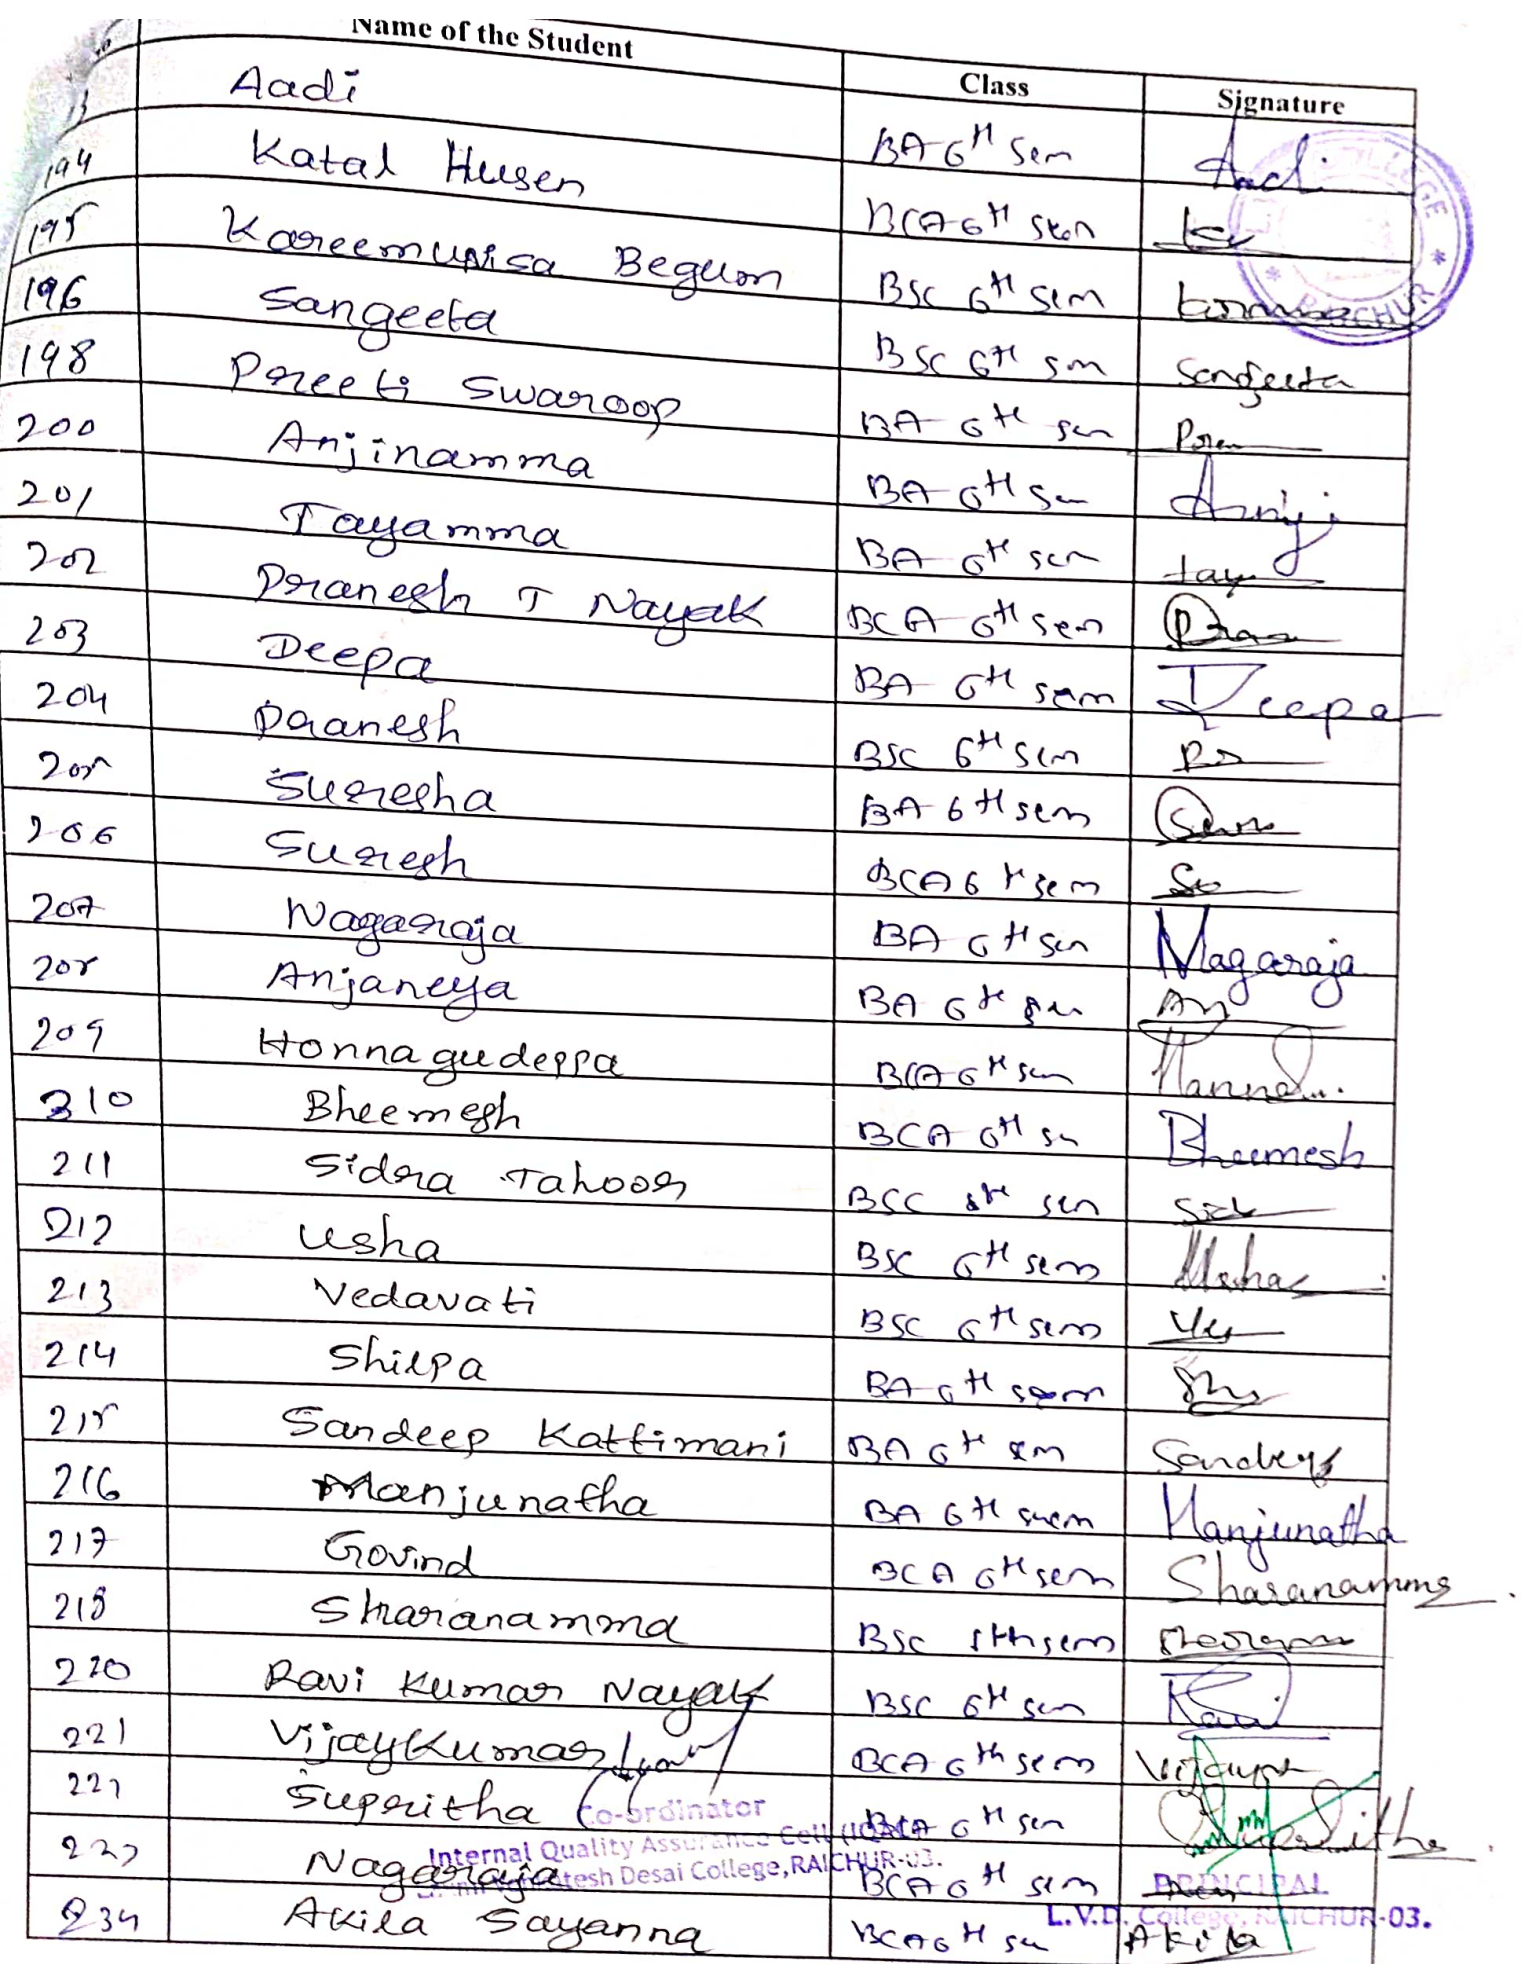 Name of the Student Class Signature
Aadi BA 6th Sem Aadi
194 Katal Husen BCA 6th sem
195 Kareemunisa Begum BSC 6th sem
196 Sangeeta BSC 6th sem Sangeeta
198 Preeti Swaroop BA 6th sem Pree
200 Anjinamma BA 6th sem Anji
201 Tayamma BA 6th sem tay
202 Pranesh T Nayak BCA 6th sem Pran
203 Deepa BA 6th sem Deepa
204 Pranesh BSC 6th sem
205 Suresha BA 6th sem
206 Suresh BCA 6th sem Su
207 Nagaraja BA 6th sem Nagaraja
208 Anjaneya BA 6th sem An
209 Honnagudeppa BCA 6th sem
210 Bheemesh BCA 6th sem Bheemesh
211 Sidra Tahoor BSC sem Sid
212 Usha BSC 6th sem Usha
213 Vedavati BSC 6th sem Ve
214 Shilpa BA 6th sem Shi
215 Sandeep Kattimani BA 6th sem Sandeep
216 Manjunatha BA 6th sem Manjunatha
217 Govind BCA 6th sem Sharanamma
218 Sharanamma BSC sem
220 Ravi Kumar Nayak BSC 6th sem Ravi
221 Vijaykumar BCA 6th sem Vijaykr
Supritha BCA 6th sem Supritha
Nagaraja BCA 6th sem
234 Akila Sayanna BCA 6th sem Akila
COLLEGE
* RAICHUR *
Co-ordinator
Internal Quality Assurance Cell (IQAC)
Desai College, RAICHUR-03.
PRINCIPAL
L.V.D. College, RAICHUR-03.